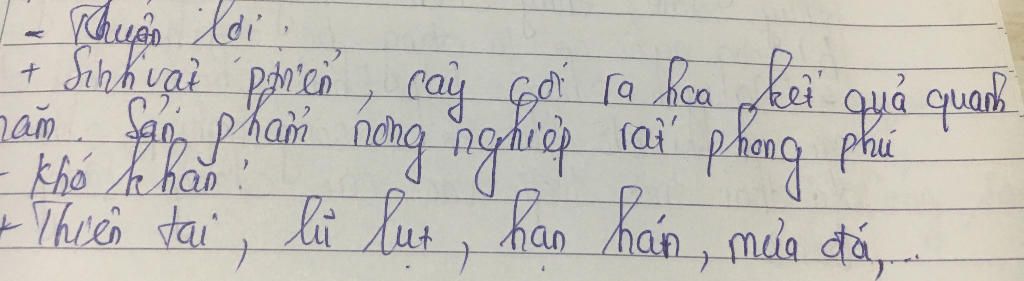 - Thuận lợi:
+ Sinh vật phát triển, cây cối ra hoa kết quả quanh
năm. Sản phẩm nông nghiệp rất phong phú
- Khó khăn:
+ Thiên tai, lũ lụt, hạn hán, mưa đá,...